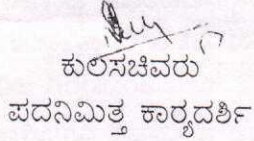 ಕುಲಸಚಿವರು
ಪದನಿಮಿತ್ತ ಕಾರ್‍ಯದರ್ಶಿ